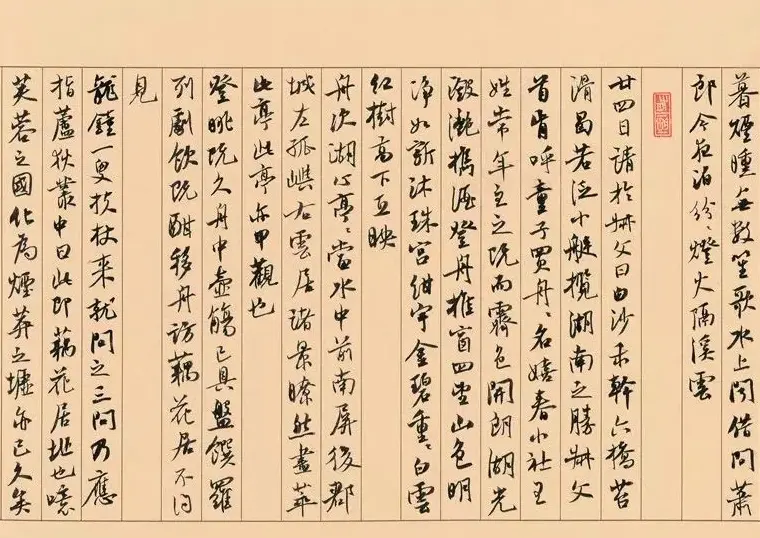 暮煙曛無數笙歌水上聞借問蕭
郎今夜泊紛々燈火隔溪雲
廿四日請於叔父曰由沙未幹六橋苔
滑曷若泛小艇攬湖南之勝叔父
首肯呼童子買舟々名嬉春小社王
姓常年主之既而霽色開朗湖光
瀲灧攜酒登舟推窗四望山色明
淨如新沐珠宮紺宇金碧重々白雲
紅樹高下互映
舟次湖心亭々當水中前南屏後郡
城左孤嶼右雲居諸景瞭然盡萃
此亭此亭亦甲觀也
登眺既久舟中壺觴已具盤饌羅
列劇飲既酣移舟訪藕花居不得
見
龍鍾一叟扶杖來就問之三問乃應
指蘆荻叢中曰此即藕花居址也噫
芙蓉之國化為煙莽之墟亦已久矣